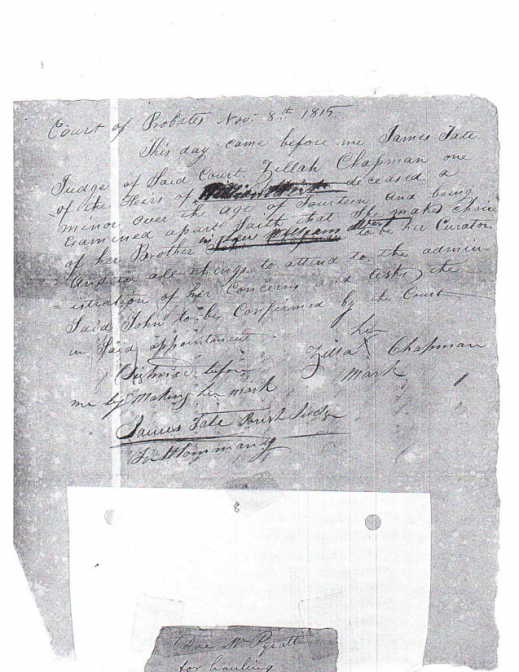 Court of Probates Nov: 8th 1815
This day came before me James Tate
Judge of Said Court Zillah Chapman one
of the Heirs of deceased a
minor over the age of Fourteen and being
Examined apart Saith that She makes choice
of her Brother to be her Curator
and in all things to attend to the admin-
istration of her Concerns and asks the
Said John to be Confirmed by the Court
in Said appointment
her
Zilla X Chapman
mark
before
me by Making her mark
James Tate Parish Judge
St Tammany
8
for hauling